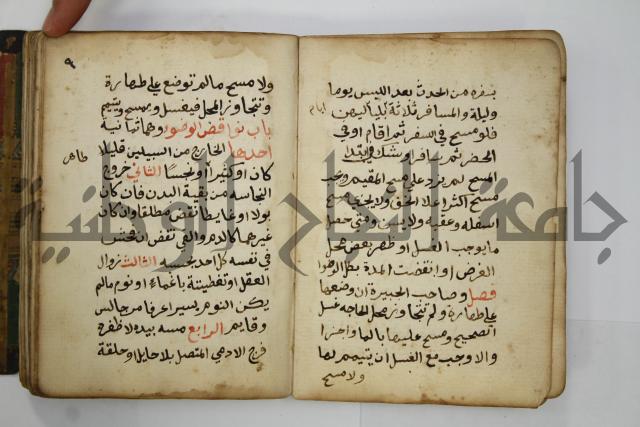 بسفره من الحدث بعد اللبس يوما
وليلة والمسافر ثلاثة بلياليهن
ايام
فلو مسح في سفر ثم اقام او في
الحضر ثم سافر او شك في ابتدا
المسح لم يزد على مسح المقيم ويجب
مسح اكثر اعلا الخف ولا يجزي مسح
اسفله وعقبه ولا يسن ومتى حصل
ما يوجب الغسل او ظهر بعض محل
الفرض او انقضت المدة بطل الوضوا
فصل وصاحب الجبيرة ان وضعها
على طهارة ولم تتجاوز محل الحاجه غسل
الصحيح ومسح عليها بالما واجزا
والا وجب مع الغسل ان يتيمم لها
ولا مسح
٩
ولا مسح مالم توضع على طهارة
وتتجاوز المحل فيغسل ويمسح ويتيمم
باب نواقض الوضوء وهي ثمانية
احدها الخارج من السبيلين قليلا
كان او كثيرا او نجسا الثاني خروج
طاهر
النجاسه من بقية البدن فان كان
بولا او غايطا نقض مطلقا وان كان
غيرهما كالدم والقي نقض ان فحش
في نفسه كل احد بحسبه الثالث زوال
العقل او تغطيته باغماء او نوم مالم
يكن النوم يسيرا عرفا من جالس
وقايم الرابع مسه بيده لا ظفره
فرج الادمي المتصل بلا حايل او حلقة
جامعة النجاح الوطنية